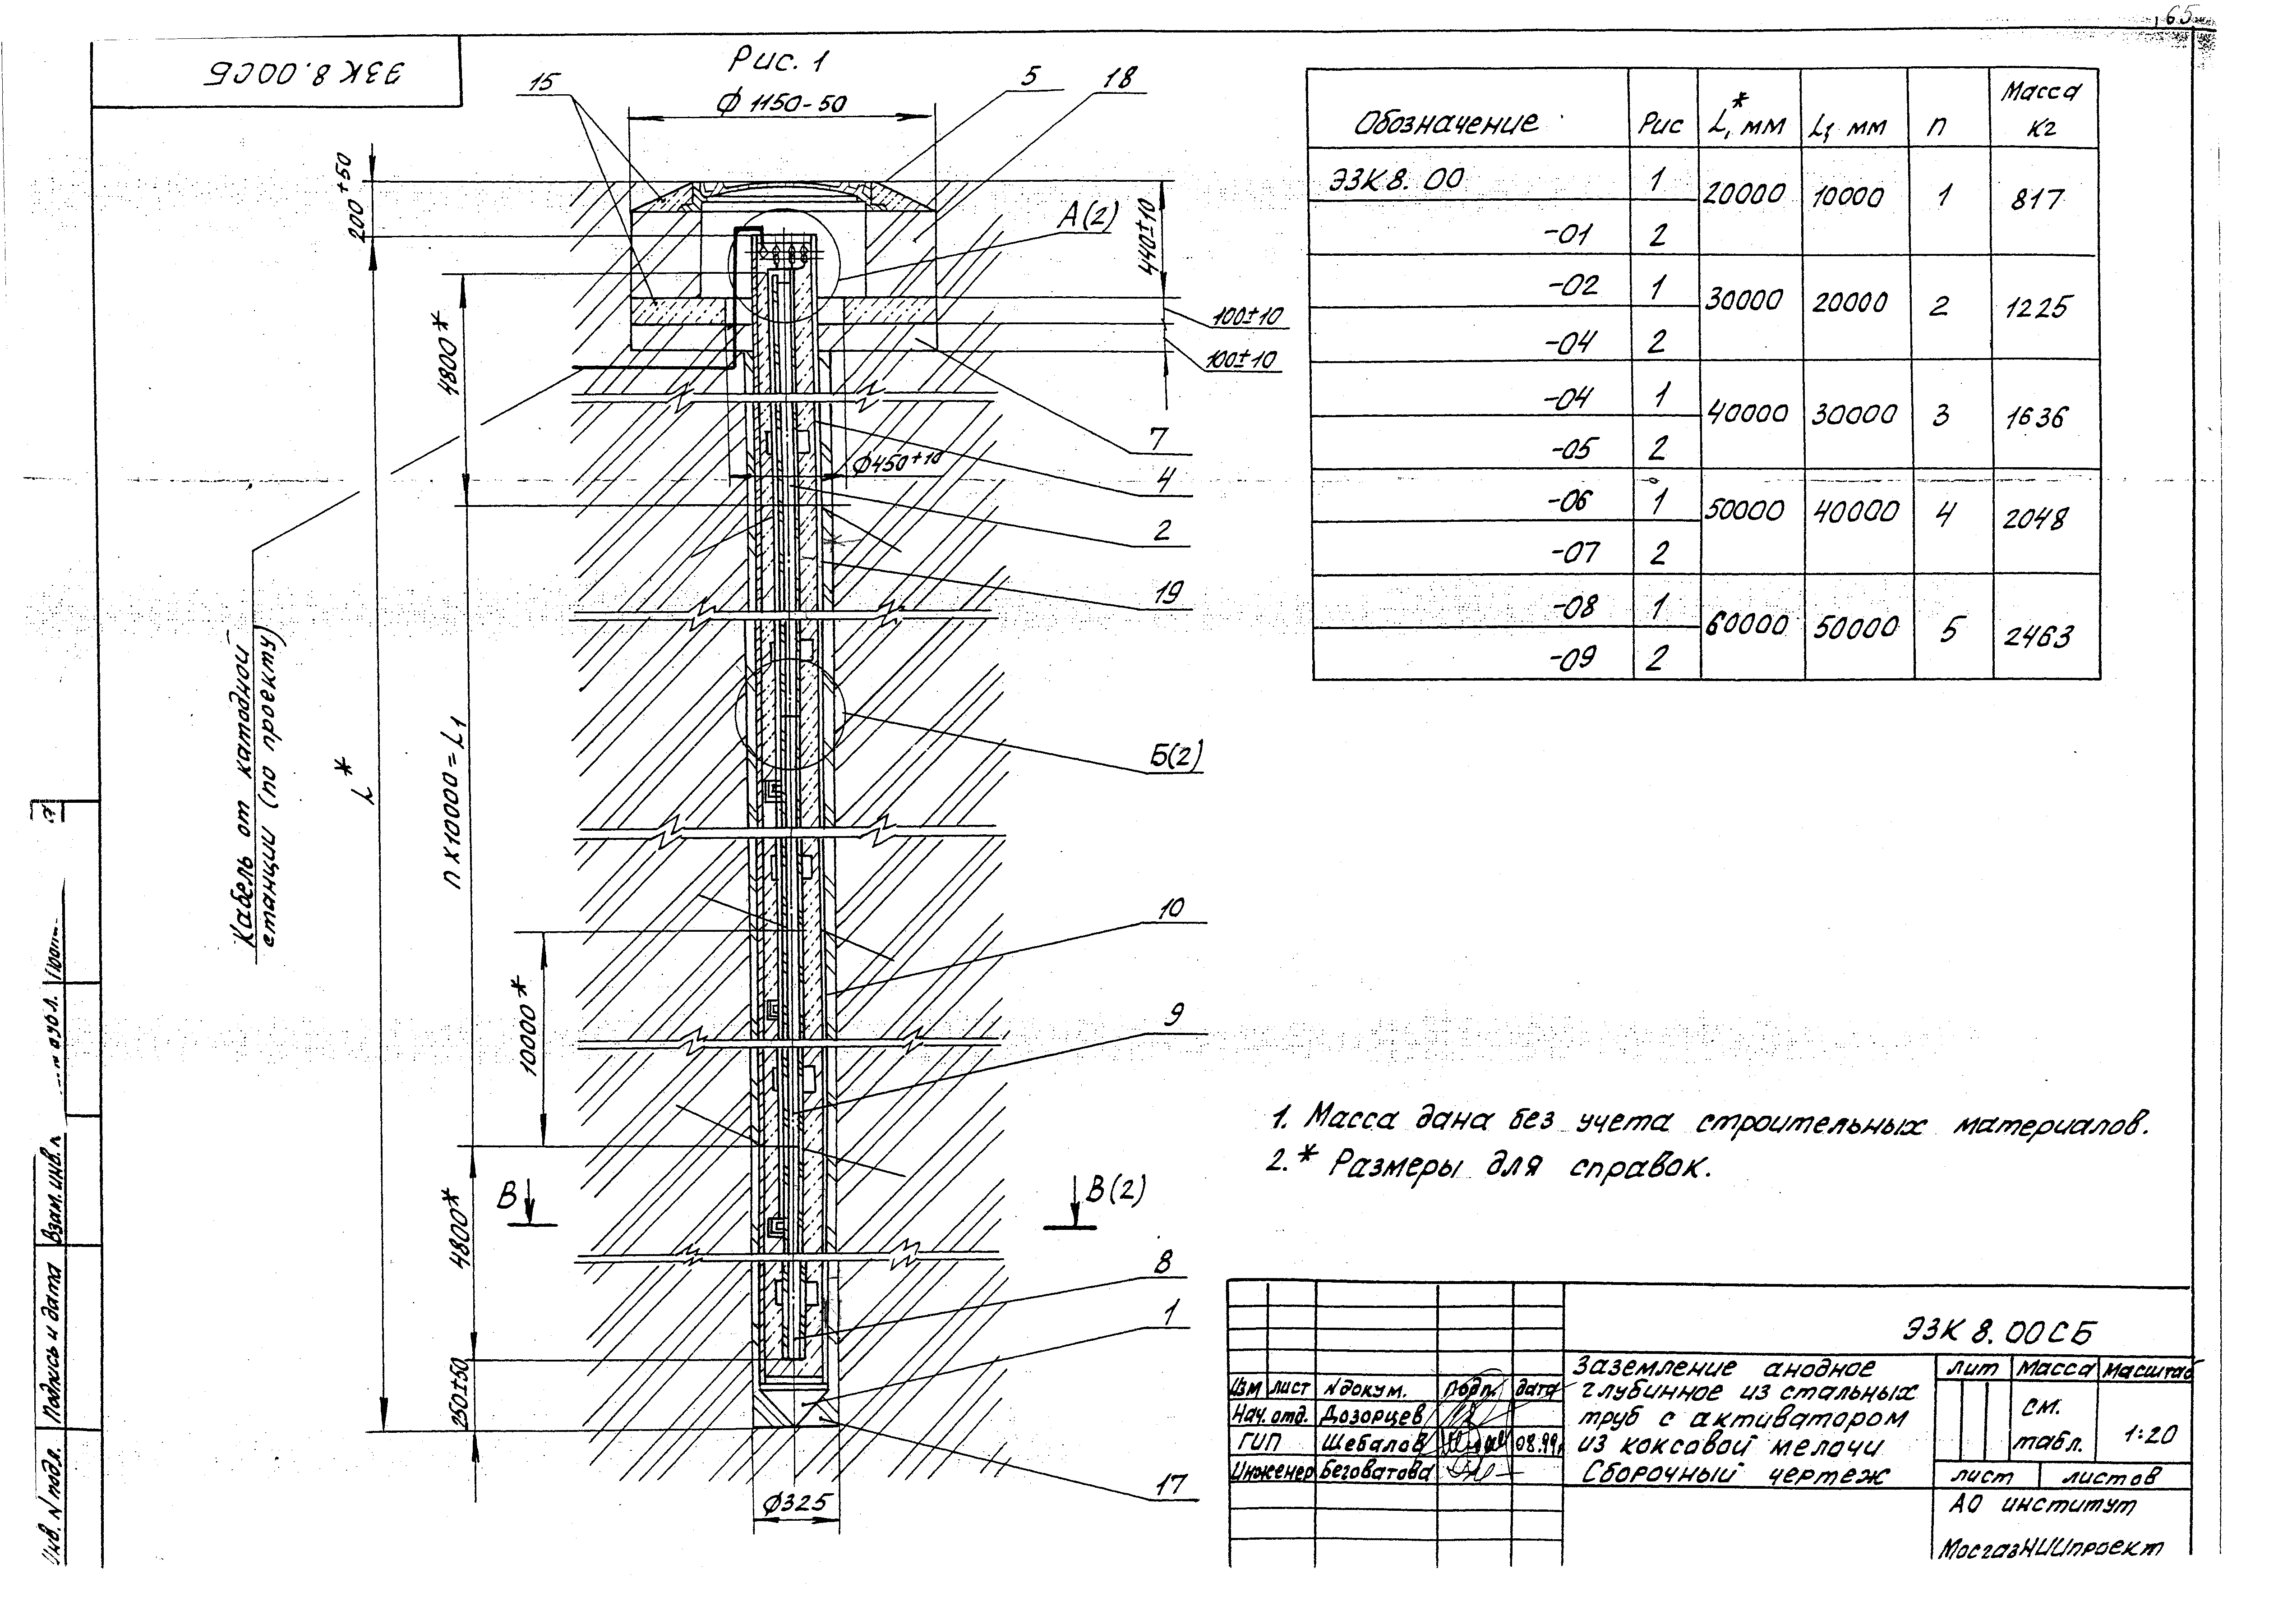 65
ЭЗК 8.00СБ
Рис. 1
15
5
18
ф 1150-50
200 +50
А(2)
440±10
100±10
100±10
4800*
ф450+10
7
4
2
19
Кабель от катодной
станции (по проекту)
L*
n x 10000 = L1
Б(2)
10
10000*
9
В
В(2)
4800*
8
1
250±50
17
ф325
Обозначение Рис L,* мм L1 мм n Масса кг
ЭЗК 8.00 1 20000 10000 1 817
-01 2
-02 1 30000 20000 2 1225
-04 2
-04 1 40000 30000 3 1636
-05 2
-06 1 50000 40000 4 2048
-07 2
-08 1 60000 50000 5 2463
-09 2
1. Масса дана без учета строительных материалов.
2.* Размеры для справок.
ЭЗК 8.00СБ
Заземление анодное
глубинное из стальных
труб с активатором
из коксовой мелочи
Сборочный чертеж
лит Масса масштаб
см.
табл.
1:20
лист листов
АО институт
МосгазНИИпроект
Изм лист N докум. Подп. дата
Нач. отд. Дозорцев
ГИП Шебалов 08.99г
Инженер Беговатова
Взам. инв.
Подпись и дата
Инв. N подл.